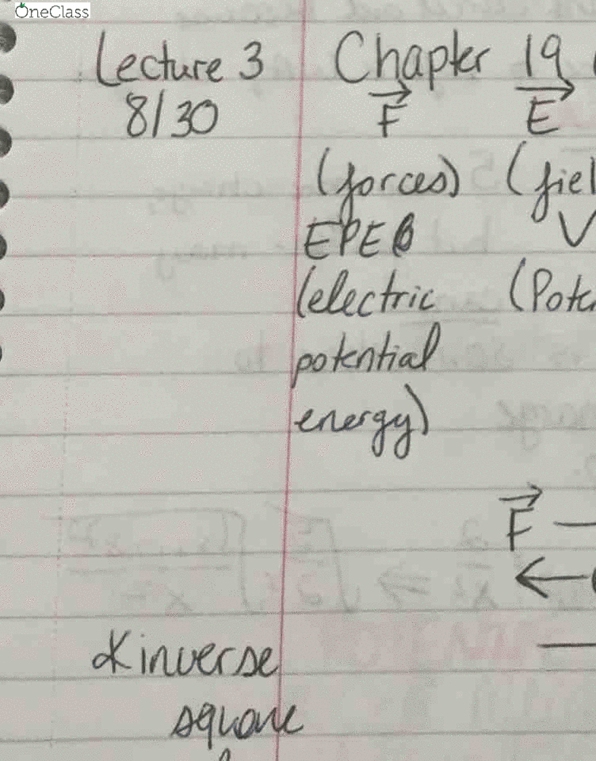 OneClass
Lecture 3 Chapter 19
8/30 F E
(forces) (fiel
EPE V
(electric (Pote
potential
energy)
F
inverse
square